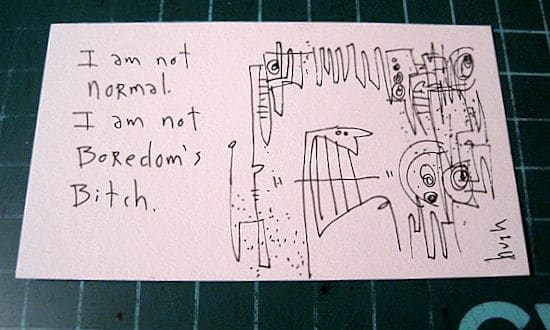 I am not
normal.
I am not
Boredom's
Bitch.
hugh